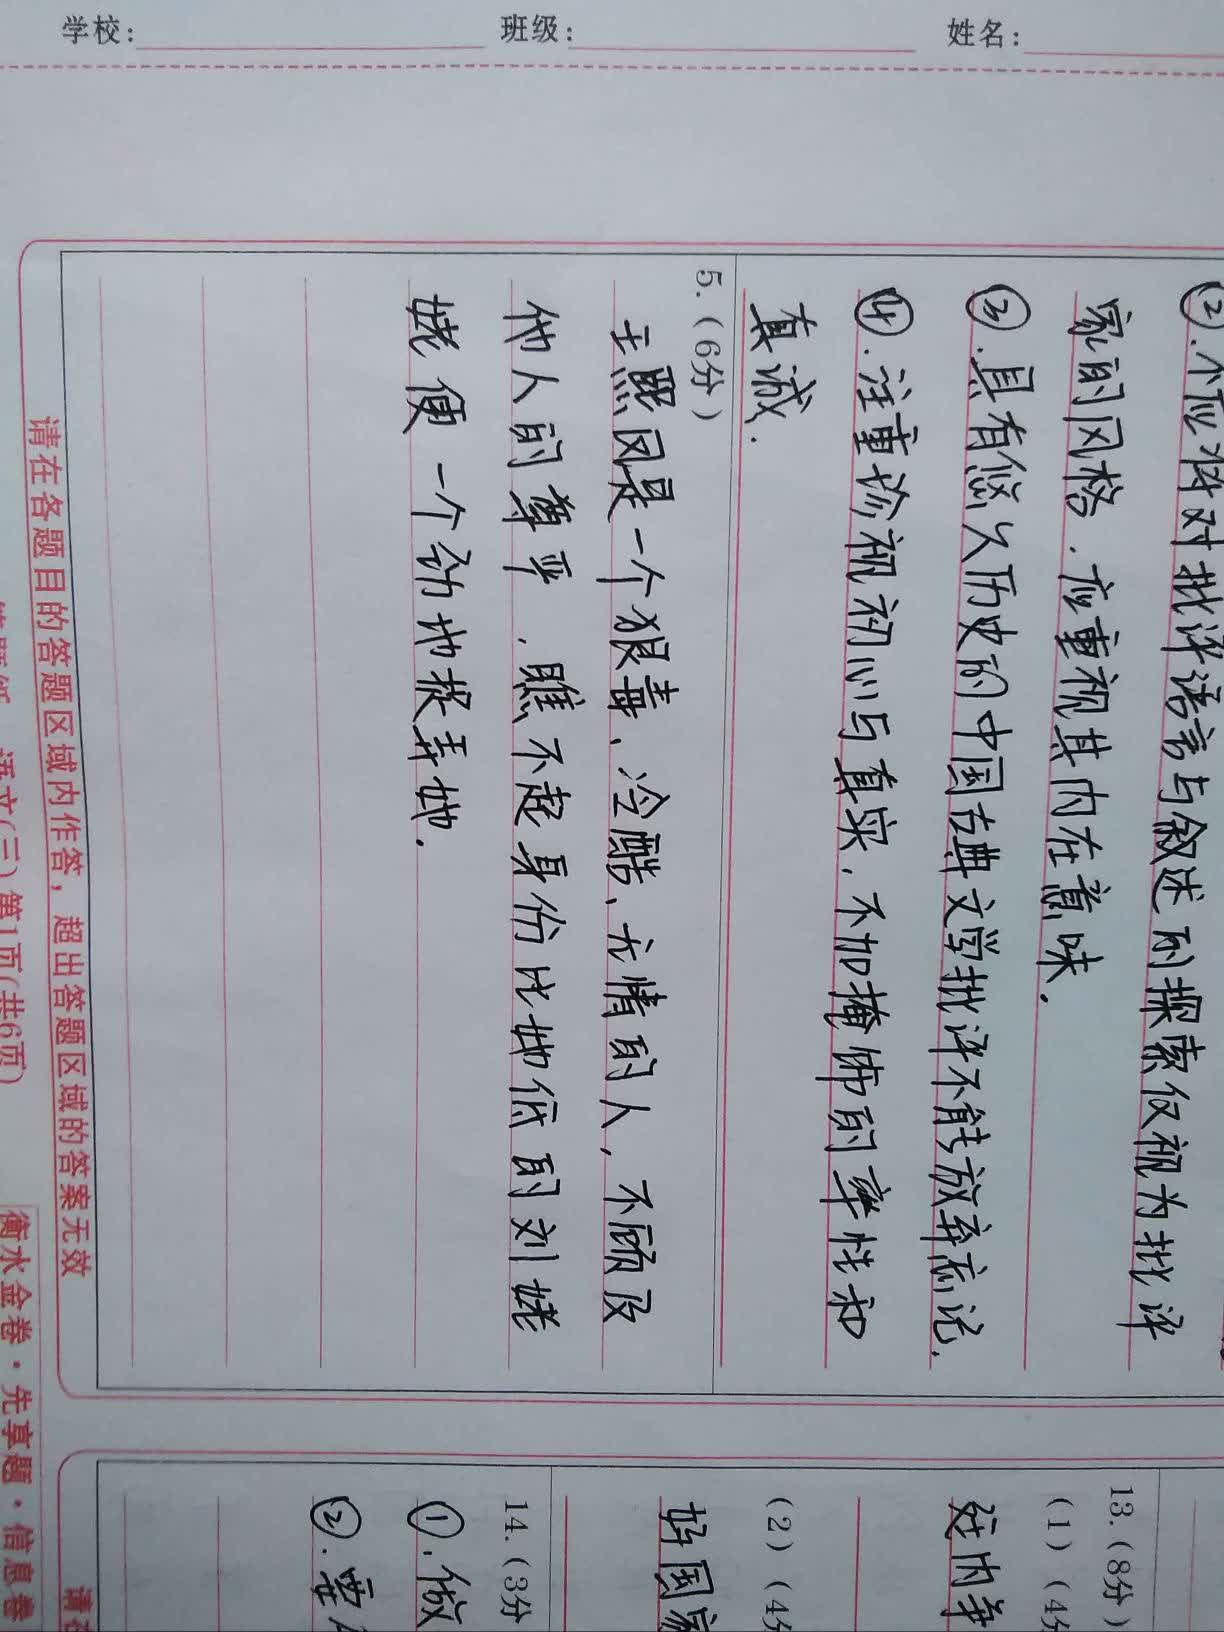 学校:
班级:
姓名:
②.不应将对批评语言与叙述的探索仅视为批评
家的风格.应重视其内在意味.
③.具有悠久历史的中国古典文学批评不能放弃忘记.
④.注重珍视初心与真实.不加掩饰的率性和
真诚.
5.(6分)
王熙凤是一个狠毒、冷酷、无情的人,不顾及
他人的尊严,瞧不起身份比她低的刘姥
姥便一个劲地捉弄她.
请在各题目的答题区域内作答,超出答题区域的答案无效
答题纸 语文(三)第1页(共6页)
衡水金卷·先享题·信息卷
13.(8分)
(1)(4分
(2)(4分
好国家
14.(3分
①.做
②.要
请在